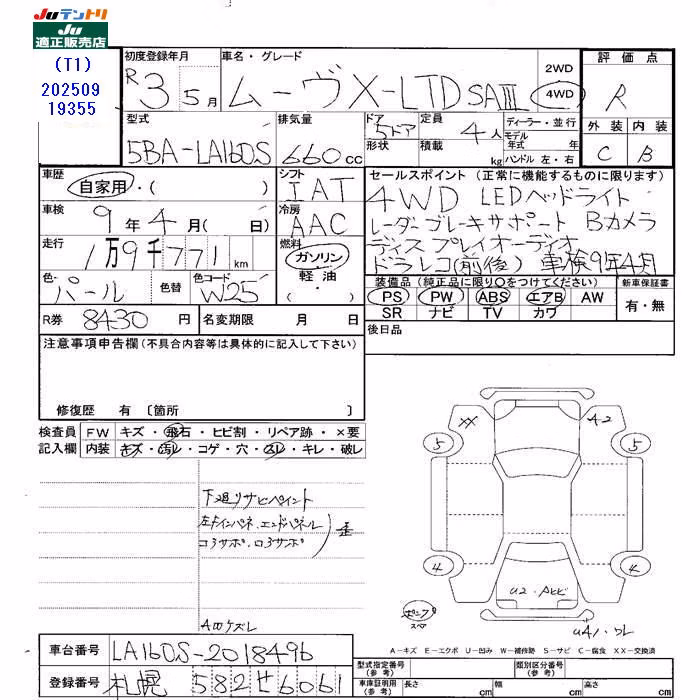 Juテントリ
Ju
適正販売店
(T1)
202509
19355
初度登録年月 車名・グレード 評価点
R3 5月 ムーヴX-LTD SAⅢ 2WD 4WD R
外装 内装
C B
型式 排気量 ドア 定員 ディーラー・並行
5BA-LA160S 660cc 5ドア 4人 モデル年式 年
形状 積載 kg ハンドル 左・右
車歴 シフト セールスポイント (正常に機能するものに限ります)
自家用・( ) IAT 4WD LEDヘッドライト
車検 冷房 レーダーブレーキサポート Bカメラ
9年4月( 日) AAC ディスプレイオーディオ
走行 燃料 ドラレコ(前後) 車検9年4月
1万9千771km ガソリン
軽油・
色 色替 色コード 装備品 (純正品に限り○をつけてください) 新車保証書
パール W25 PS PW ABS エアB AW 有・無
SR ナビ TV カワ
R券 8430円 名変期限 月 日 後日品
注意事項申告欄 (不具合内容等は具体的に記入して下さい)
修復歴 有 〔箇所 〕
検査員 FW キズ・飛石・ヒビ割・リペア跡・×要
記入欄 内装 キズ・汚レ・コゲ・穴・スレ・キレ・破レ
XX A2
5 5
下廻リサビペイント
左インパネ、エンドパネル
コアサポ、ロアサポ 歪
4 4
U2・Aヒビ
スペア
U41・ワレ
A四ケズレ
A-キズ E-エクボ U-凹み W-補修跡 S-サビ C-腐食 XX-交換済
車台番号 LA160S-2018496
登録番号 札幌 582せ6061
型式指定番号(参考) 類別区分番号(参考)
車庫証明用(参考) 長さ cm 幅 cm 高さ cm